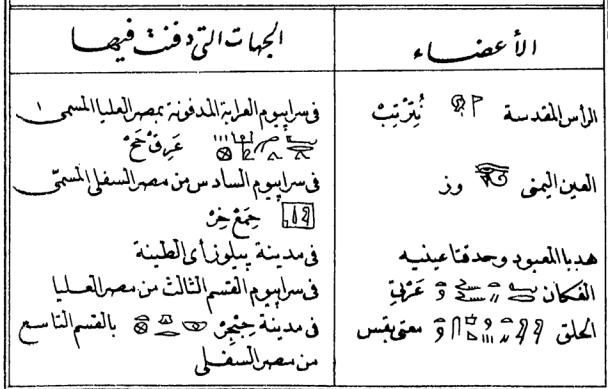 الأعضاء
الجهات التى دفنت فيها
الرأس المقدسة نُتِرْتِبْ
فى سرابيوم العرابة المدفونة بمصر العليا المسمى
عَرِقْ حَحْ
العين اليمنى وز
فى سرابيوم السادس من مصر السفلى المسمّى
حِمَعْ خِرْ
هدبا المعبود وحدقتا عينيه
فى مدينة پيلوز أى الطينة
الفكان عَرْتِى
فى سرابيوم القسم الثالث من مصر العليا
الحلق معتى بقس
فى مدينة حِبْحِرْ بالقسم التاسع
من مصر السفلى